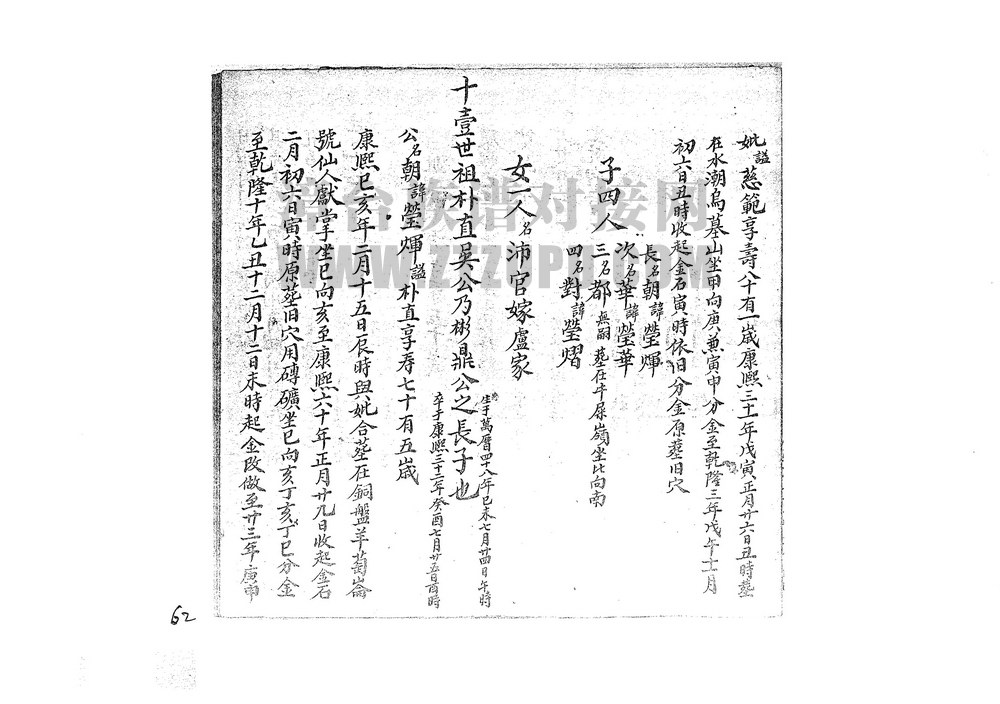 妣諡慈範享壽八十有一歲康熙三十一年戊寅正月廿六日丑時塟
在水潮烏墓山坐甲向庚兼寅申分金至乾隆三年戊午十一月
初六日丑時收起金石寅時依旧分金原塟旧穴
子四人
長名朝諱瑩煇
次名華諱瑩華
三名都無嗣塟在牛屎嶺坐北向南
四名對諱瑩熠
女一人名沛官嫁盧家
十壹世祖朴直吳公乃彬鼎公之長子也
生于萬曆四十八年己未七月廿四日午時
卒于康熙三十二年癸酉七月廿五日酉時
公名朝諱瑩煇諡朴直享春七十有五歲
康熙己亥年二月十五日辰時與妣合塟在銅盤羊萄崙
號仙人獻掌坐巳向亥至康熙六十年正月廿九日收起金石
二月初六日寅時原塟旧穴用磚礦坐巳向亥丁亥丁巳分金
至乾隆十年乙丑十二月十二日未時起金改做至廿三年庚申
62
辈台族谱对接网
WWW.ZZZUPU.COM